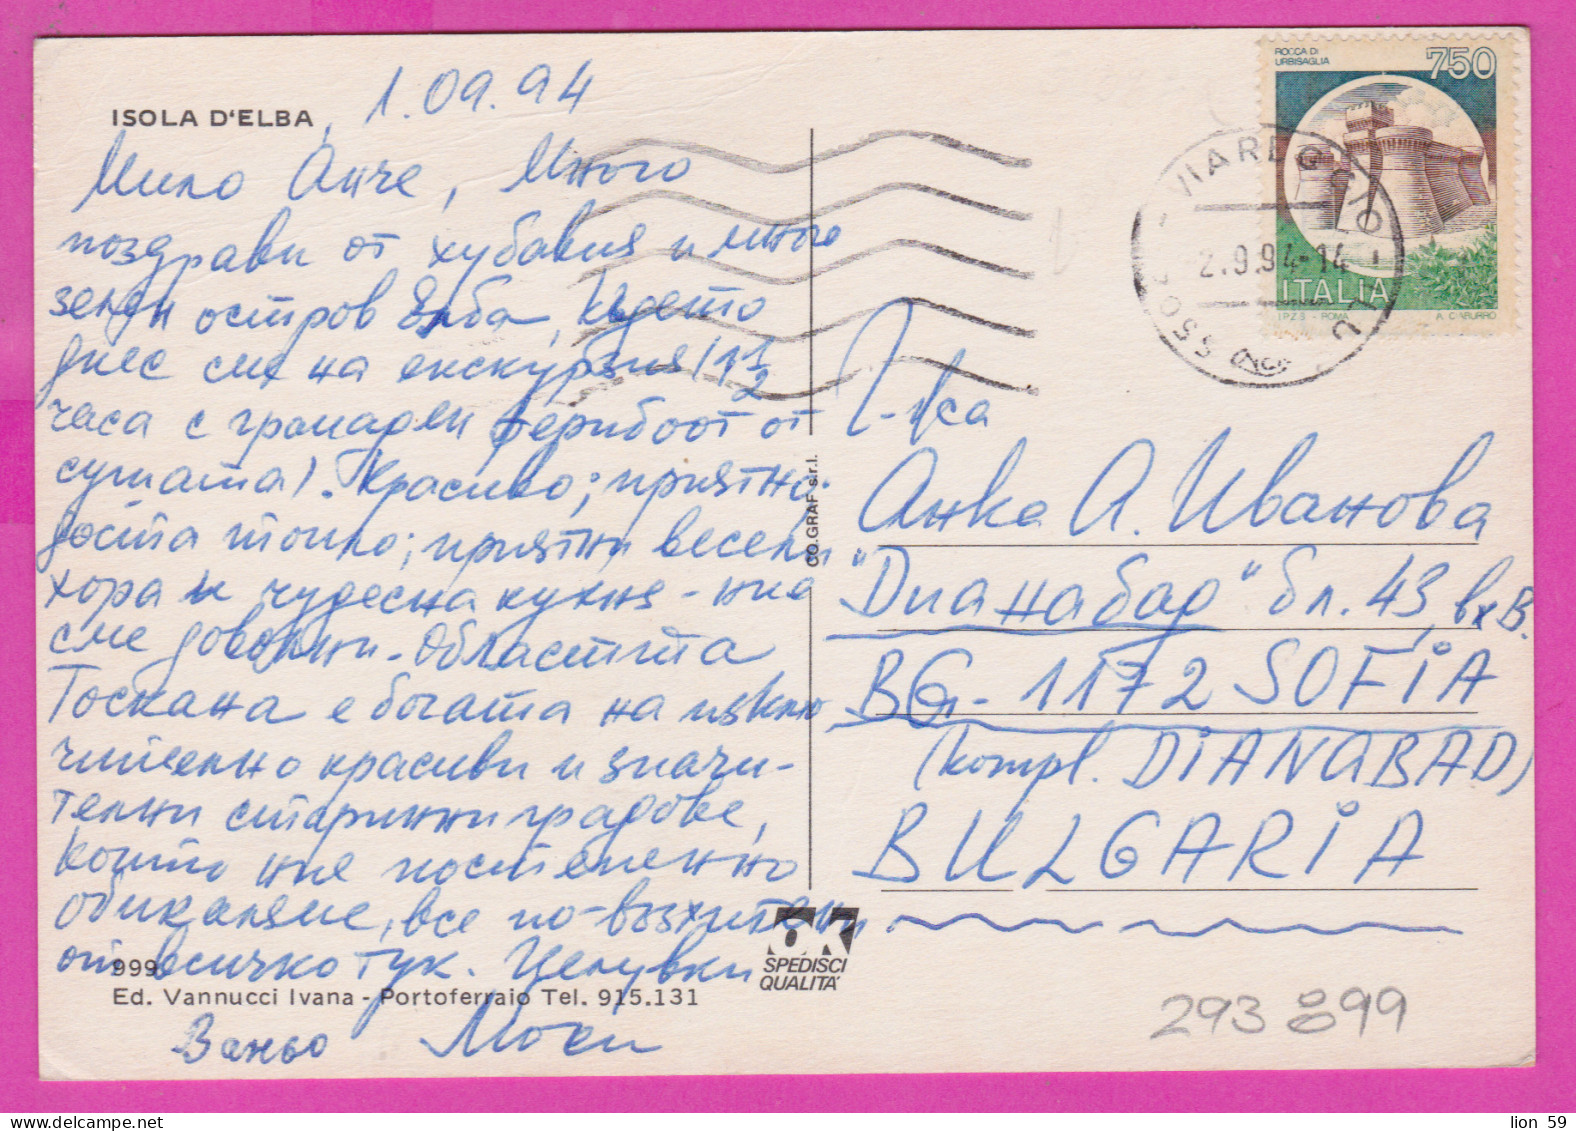 ISOLA D'ELBA, 1.09.94
Мило Анче, Много
поздрави от хубавия и много
зелен остров Елба, където
днес сме на екскурзия (1 1/2
часа с грамаден ферибоот от
сушата). Красиво; приятно;
доста топло; приятни весели
хора и чудесна кухня - ние
сме доволни. Областта
Тоскана е богата на изклю
чително красиви и значи-
телни старинни градове,
които ние постепенно
обикаляме, все по-възхитени
от всичко тук. Целувки
Ваньо Моси
999
Ed. Vannucci Ivana - Portoferraio Tel. 915.131
CO.GRAF s.r.l.
OK
SPEDISCI
QUALITÀ
ROCCA DI
URBISAGLIA
750
ITALIA
I.P.Z.S. - ROMA
A. CIABURRO
2.9.94-14
Г-жа
Анка А. Иванова
"Дианабад" бл. 43, вх В.
BG-1172 SOFIA
(kompl. DIANABAD)
BULGARIA
293 899
lion 59